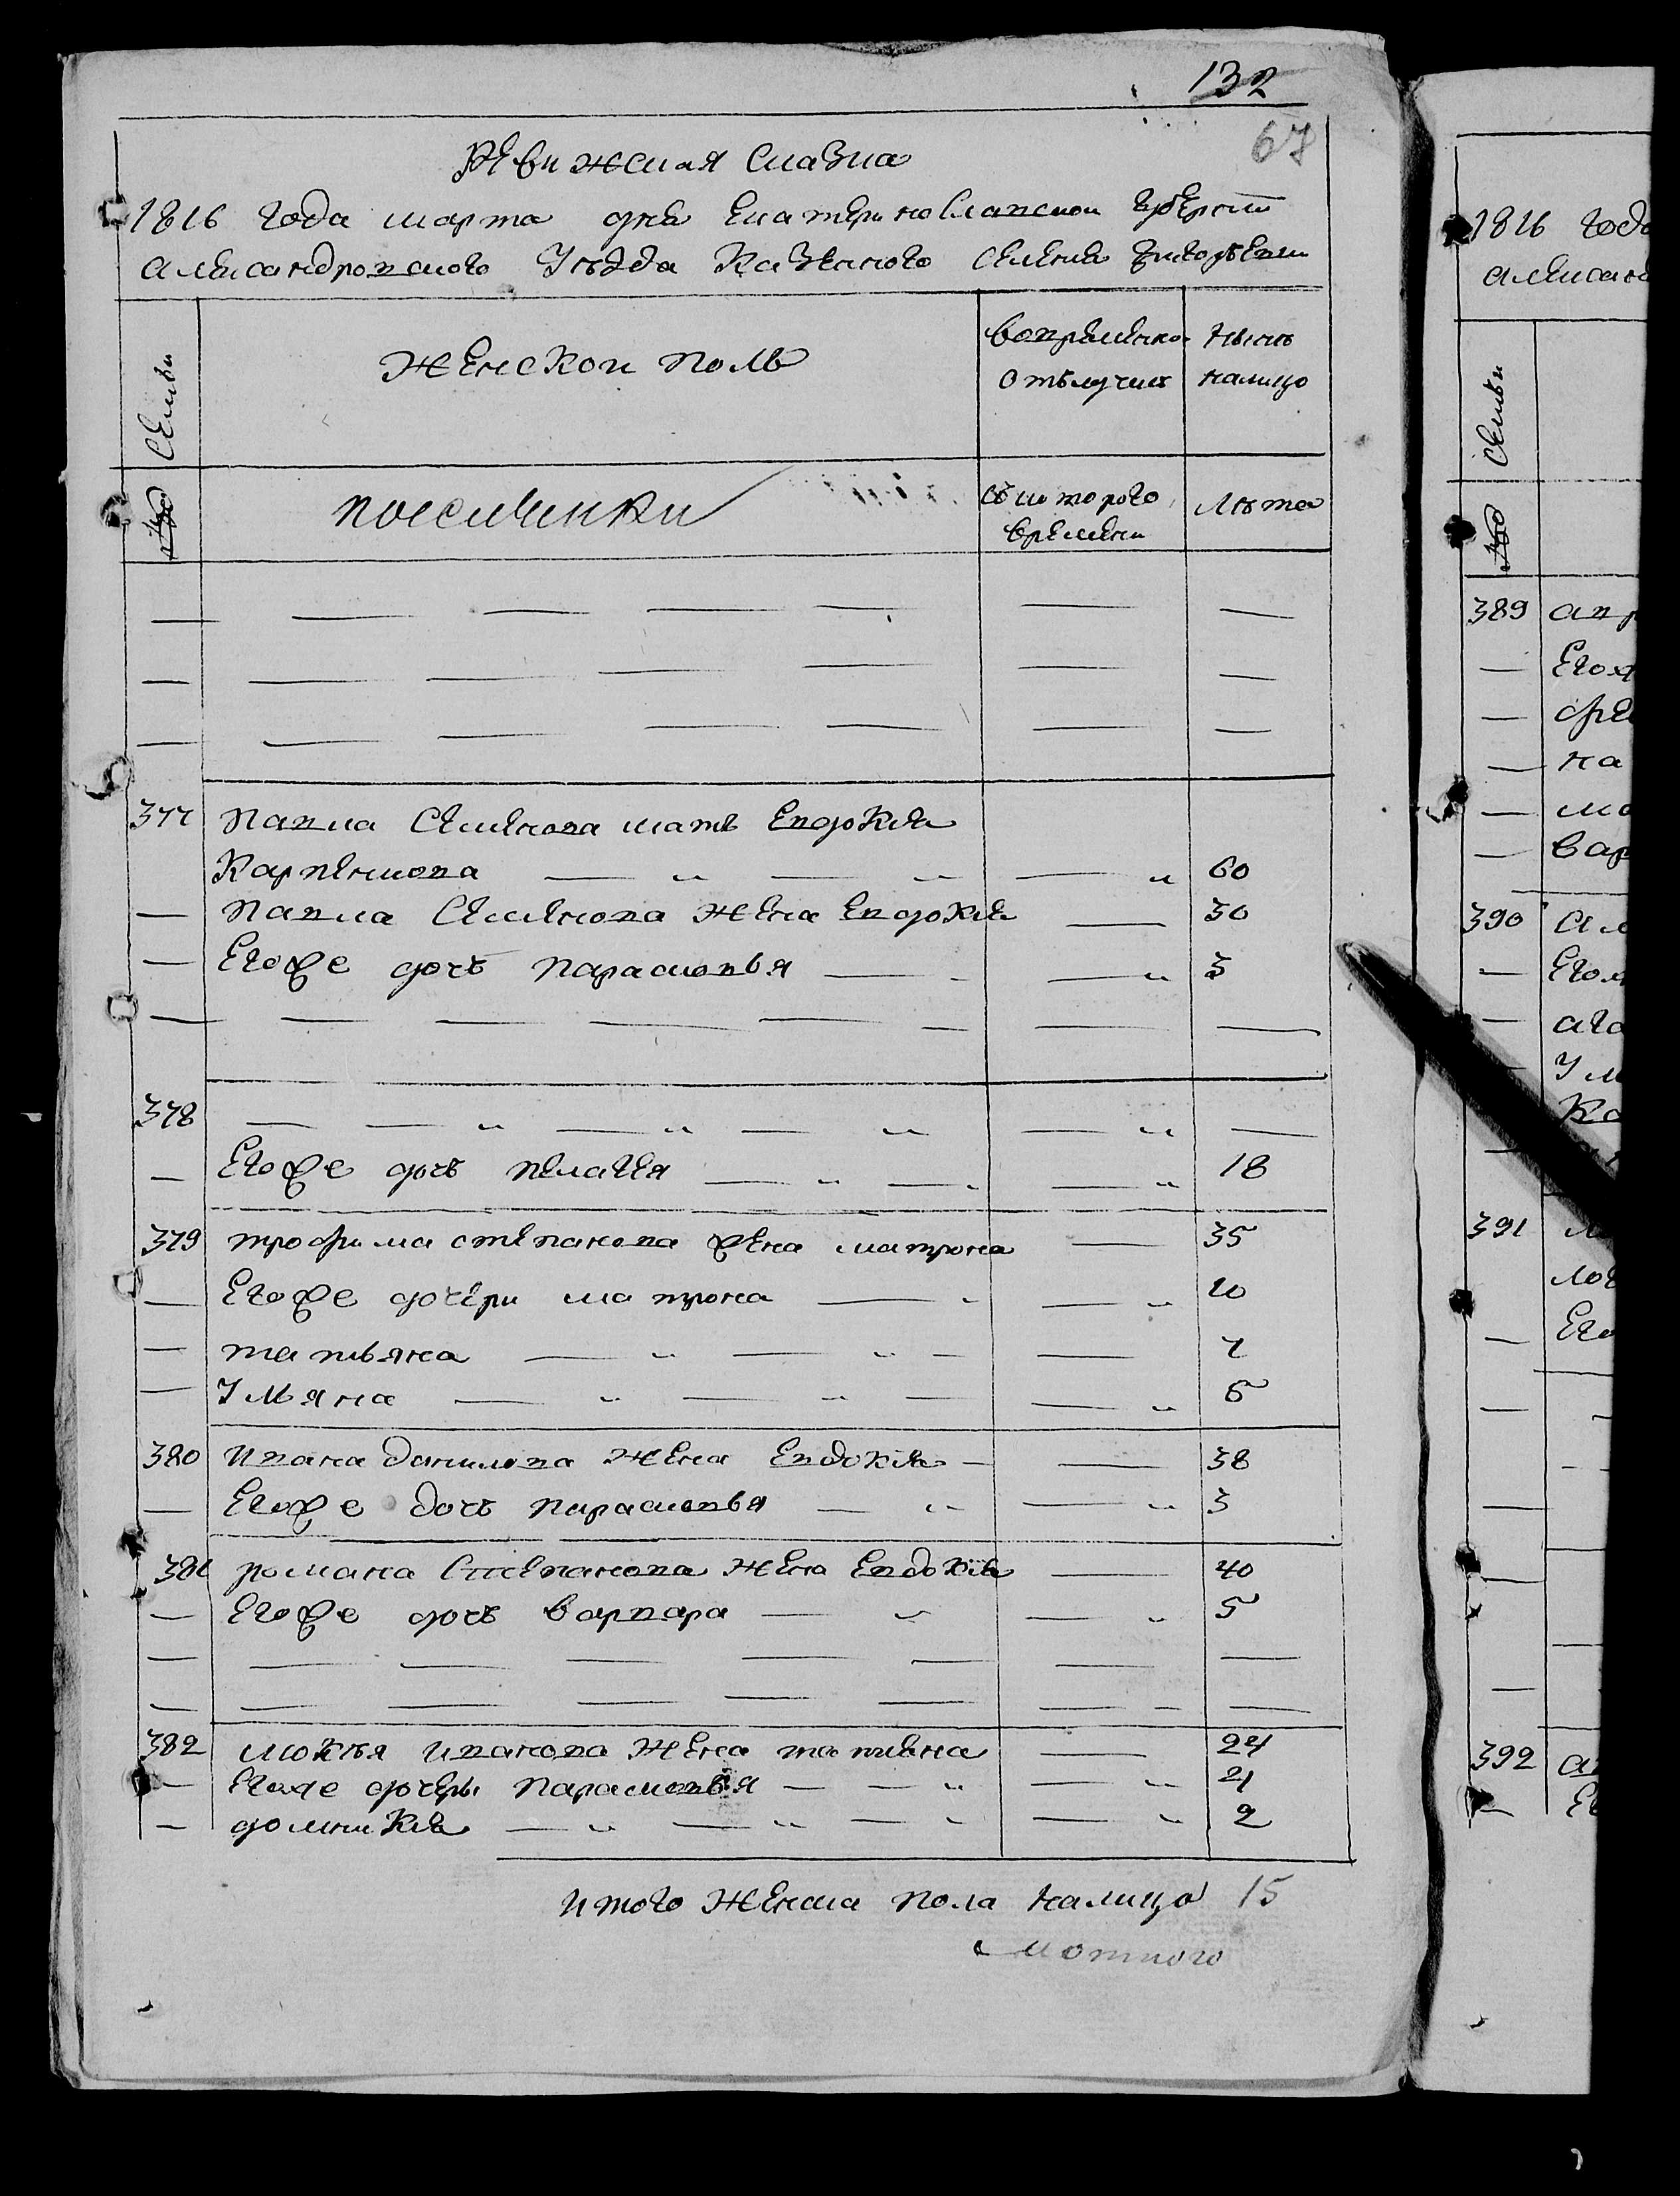 132
67
Ревижская Сказка
1816 года марта дня Екатеринославской губерніи
александровского Уезда Казенного селения григорьевки
Семьи
женской полъ
вовременной
отлучке
Ныне
налицо
№
съ которого
времени
Лѣта
377 Павла Семенова мать Евдокия
Карпенкова — „ — „ — „ 60
— Павла Семенова жена Евдокия — 30
— Егоже дочь Парасковья — - — „ 3
378 — — „ — „ — „ — „ —
— Егоже дочь пелагея — „ — - — „ 18
379 трофима степанова жена матрона — 35
— Егоже дочери матрона — - — „ 10
— татьяна — „ — „ — — 7
— Ульяна — „ — „ — — „ 5
380 Ивана данилова жена Евдокия - — 38
— Егоже дочь парасковья — „ — „ 3
381 романа Степанова жена Евдокия — 40
— Егоже дочь варвара — „ — „ 5
382 мокея иванова жена татиана — 24
— Егоже дочери Парасковья — — „ — „ 4
— домникия — „ — „ — „ — „ 2
итого женска пола налицо 15
389
390
391
392
1816 года
Семьи
№